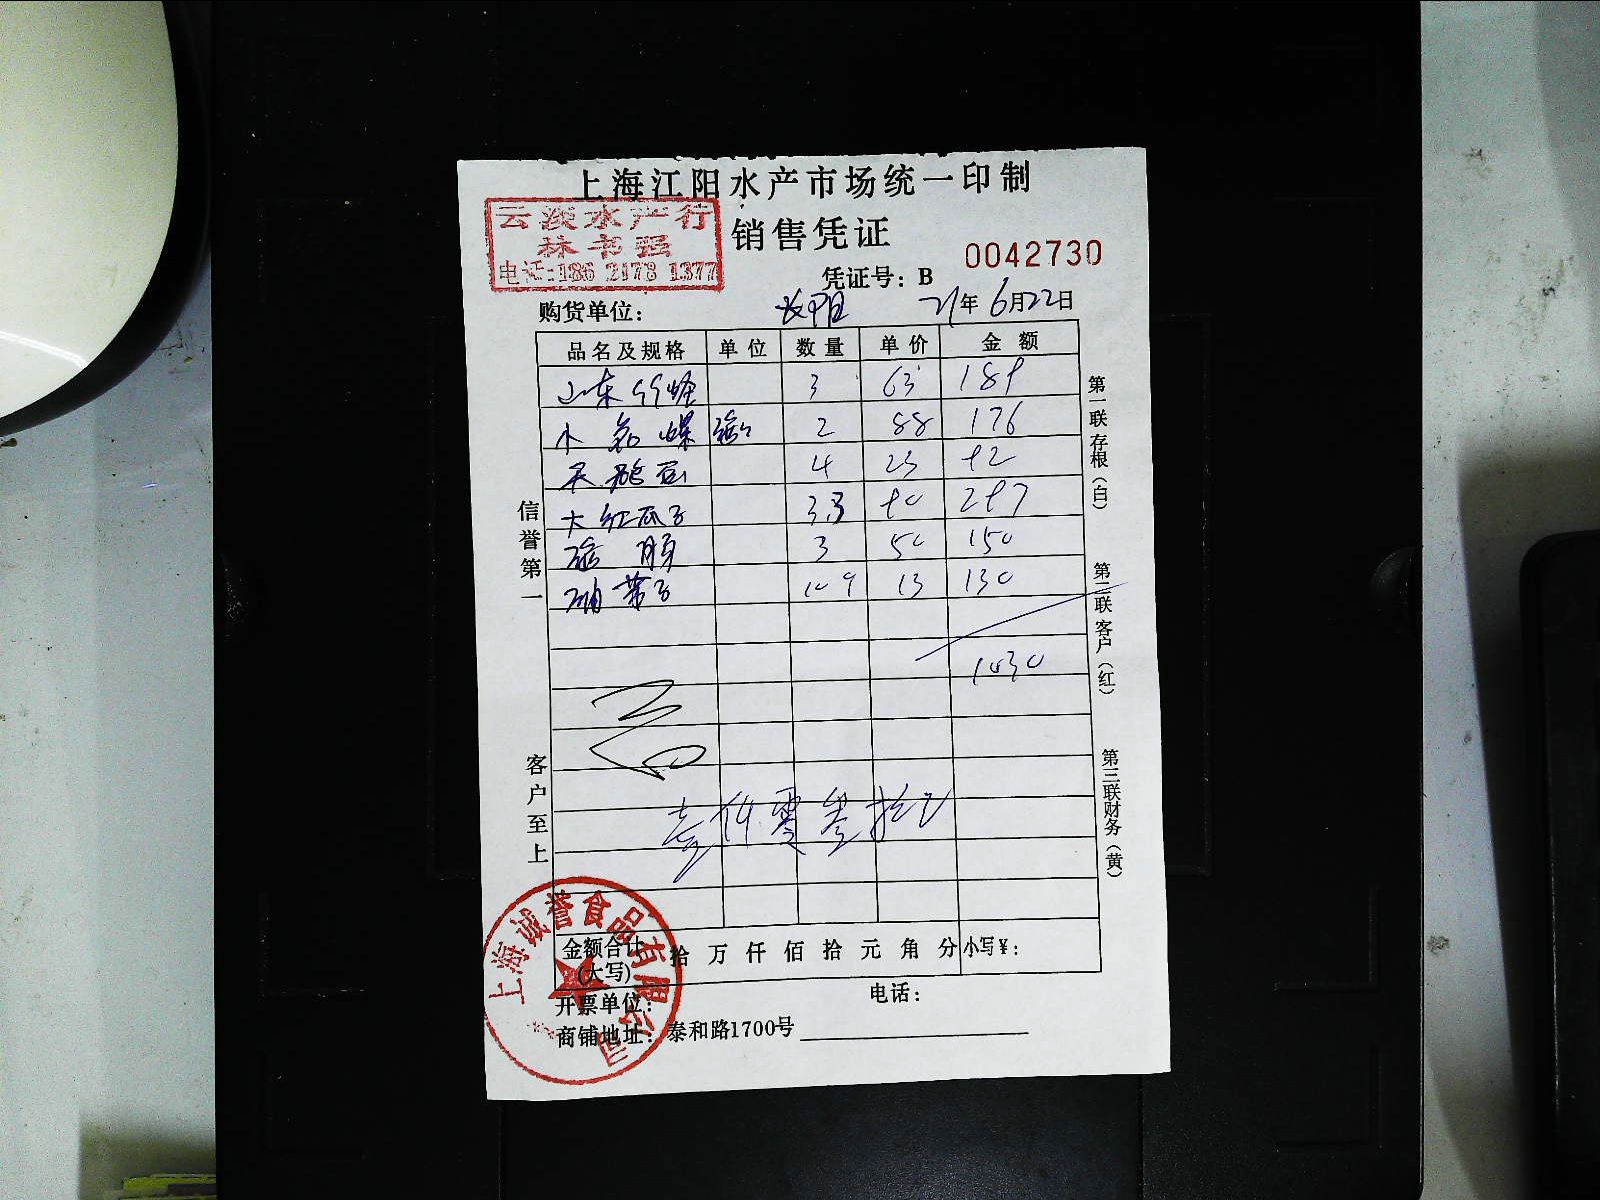 上海江阳水产市场统一印制
云淡水产行
林书强
电话:186 2178 1377
销售凭证
0042730
凭证号：B
购货单位： 长阳 21年6月22日
品名及规格 单位 数量 单价 金额
山东 3 63 189
小 2 88 176
天鹅蛋 4 23 92
大红瓜子 3.3 90 297
3 50 150
带子 10.9 13 130
1030
壹仟零叁拾元
信誉第一
客户至上
第一联存根（白）
第二联客户（红）
第三联财务（黄）
金额合计(大写) 拾万仟佰拾元角分 小写¥：
开票单位： 电话：
商铺地址：泰和路1700号
上海诚誉食品有限公司